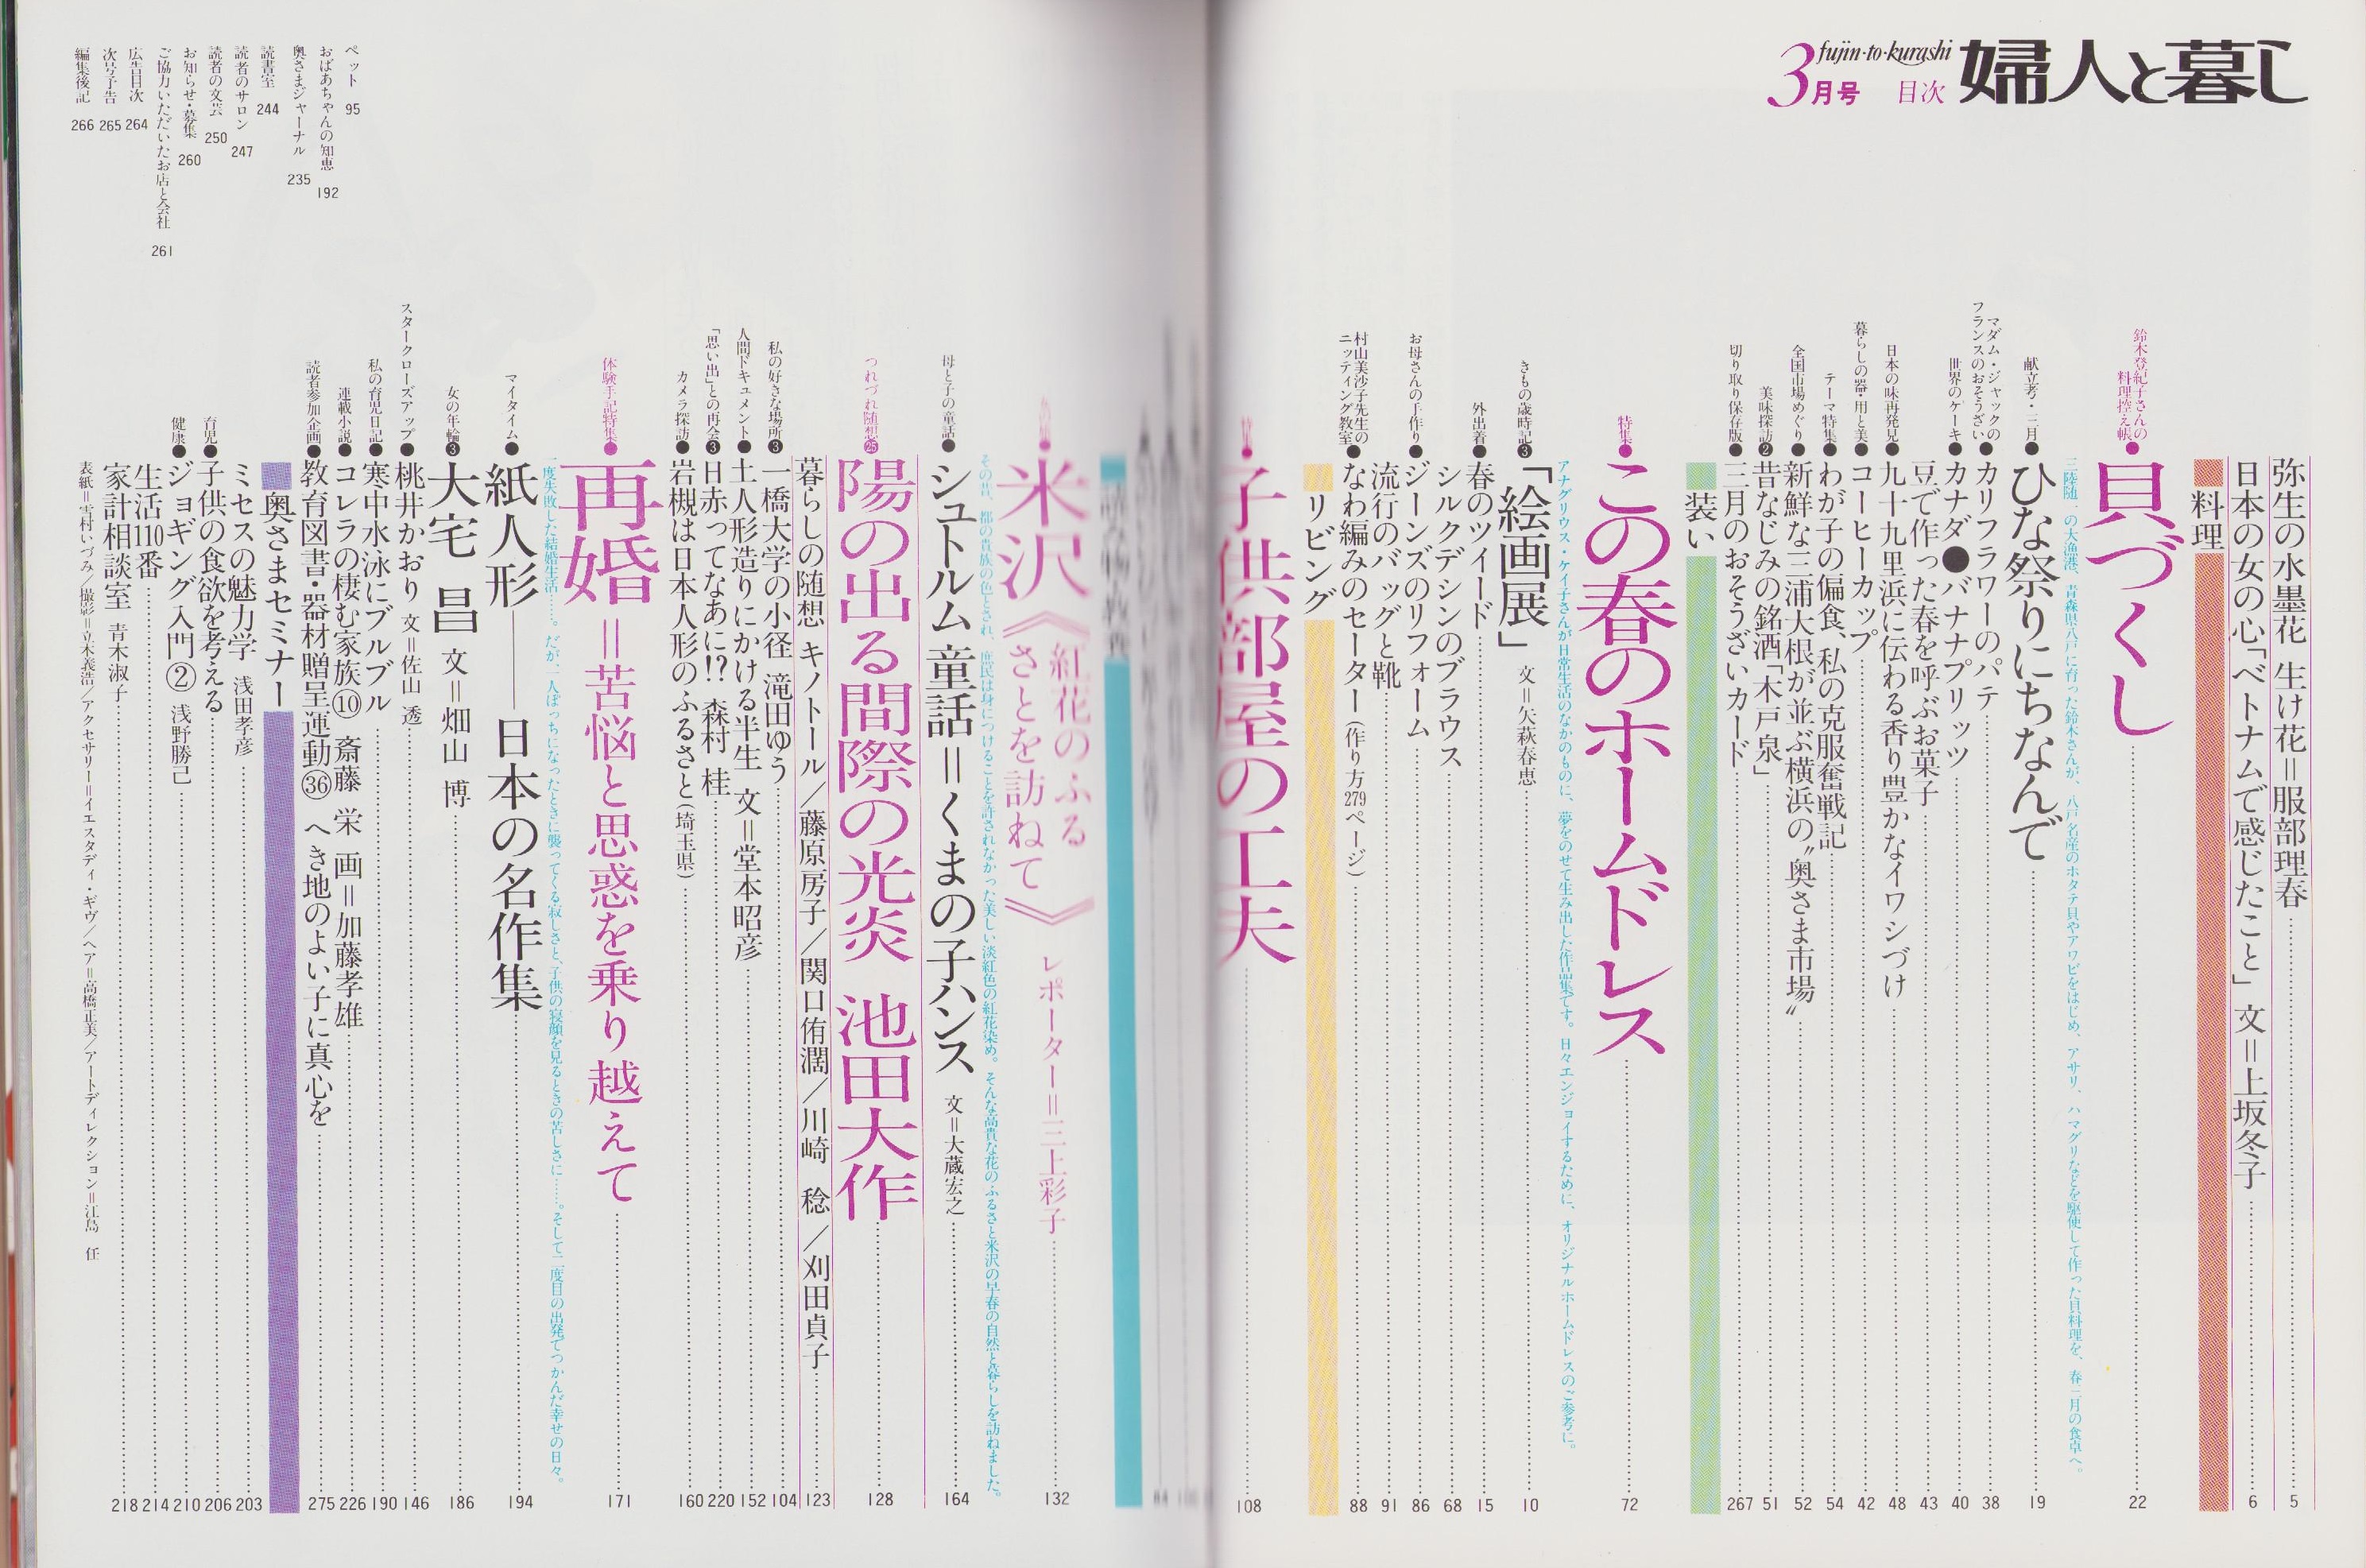 婦人と暮し
fujin-to-kurashi
3月号 目次
弥生の水墨花 生け花＝服部理春 5
日本の女の心「ベトナムで感じたこと」 文＝上坂冬子 6
料理
鈴木登紀子さんの料理控え帳●貝づくし 22
三陸随一の大漁港、青森県八戸に育った鈴木さんが、八戸名産のホタテ貝やアワビをはじめ、アサリ、ハマグリなどを駆使して作った貝料理を、春三月の食卓へ。
献立考・三月●ひな祭りにちなんで 19
マダム・ジャックのフランスのおそうざい●カリフラワーのパテ 38
世界のケーキ●カナダ●バナナブリッツ 40
豆で作った春を呼ぶお菓子 43
日本の味再発見●九十九里浜に伝わる香り豊かなイワシづけ 48
暮らしの器・用と美●コーヒーカップ 42
テーマ特集●わが子の偏食、私の克服奮戦記 54
全国市場めぐり●新鮮な三浦大根が並ぶ横浜の〝奥さま市場〟 52
美味探訪❷昔なじみの銘酒「木戸泉」 51
切り取り保存版●三月のおそうざいカード 267
装い
特集●この春のホームドレス 72
アナグリウス・ケイ子さんが日常生活のなかのものに、夢をのせて生み出した作品集です。日々エンジョイするために、オリジナルホームドレスのご参考に。
きもの歳時記❸「絵画展」 文＝矢萩春恵 10
外出着●春のツイード 15
シルクデシンのブラウス 68
お母さんの手作り●ジーンズのリフォーム 86
流行のバッグと靴 91
村山美沙子先生のニッティング教室●なわ編みのセーター(作り方279ページ) 88
リビング
子供部屋の工夫 108
米沢《紅花のふるさとを訪ねて》 レポーター＝三上彩子 132
その昔、都の貴族の色とされ、庶民は身につけることを許されなかった美しい淡紅色の紅花染め。そんな高貴な花のふるさと米沢の早春の自然と暮らしを訪ねました。
母と子の童話●シュトルム童話＝くまの子ハンス 文＝大蔵宏之 164
つれづれ随想㉕陽の出る間際の光炎 池田大作 128
暮らしの随想 キノトール／藤原房子／関口侑潤／川崎 稔／刈田貞子 123
私の好きな場所❸一橋大学の小径 滝田ゆう 104
人間ドキュメント●土人形造りにかける半生 文＝堂本昭彦 152
「思い出」との再会❸日赤ってなあに!? 森村 桂 220
カメラ探訪●岩槻は日本人形のふるさと(埼玉県) 160
体験手記特集●再婚＝苦悩と思惑を乗り越えて 171
一度失敗した結婚生活……。だが、一人ぼっちになったときに襲ってくる寂しさと、子供の寝顔を見るときの苦しさに……。そして二度目の出発でつかんだ幸せの日々。
マイタイム●紙人形──日本の名作集 194
女の年輪❸大宅 昌 文＝畑山 博 186
スタークローズアップ●桃井かおり 文＝佐山 透 146
私の育児日記●寒中水泳にブルブル 190
連載小説●コレラの棲む家族⑩ 斎藤 栄 画＝加藤孝雄 226
読者参加企画●教育図書・器材贈呈運動㊱ へき地のよい子に真心を 275
奥さまセミナー
ミセスの魅力学 浅田孝彦 203
育児●子供の食欲を考える 206
健康●ジョギング入門② 浅野勝己 210
生活110番 214
家計相談室 青木淑子 218
表紙＝雪村いづみ／撮影＝立木義浩／アクセサリー＝イエスタディ・ギヴ／ヘア＝高橋正美／アートディレクション＝江島 任
ペット 95
おばあちゃんの知恵 192
奥さまジャーナル 235
読書室 244
読者のサロン 247
読者の文芸 250
お知らせ・募集 260
ご協力いただいたお店と会社 261
広告目次 264
次号予告 265
編集後記 266